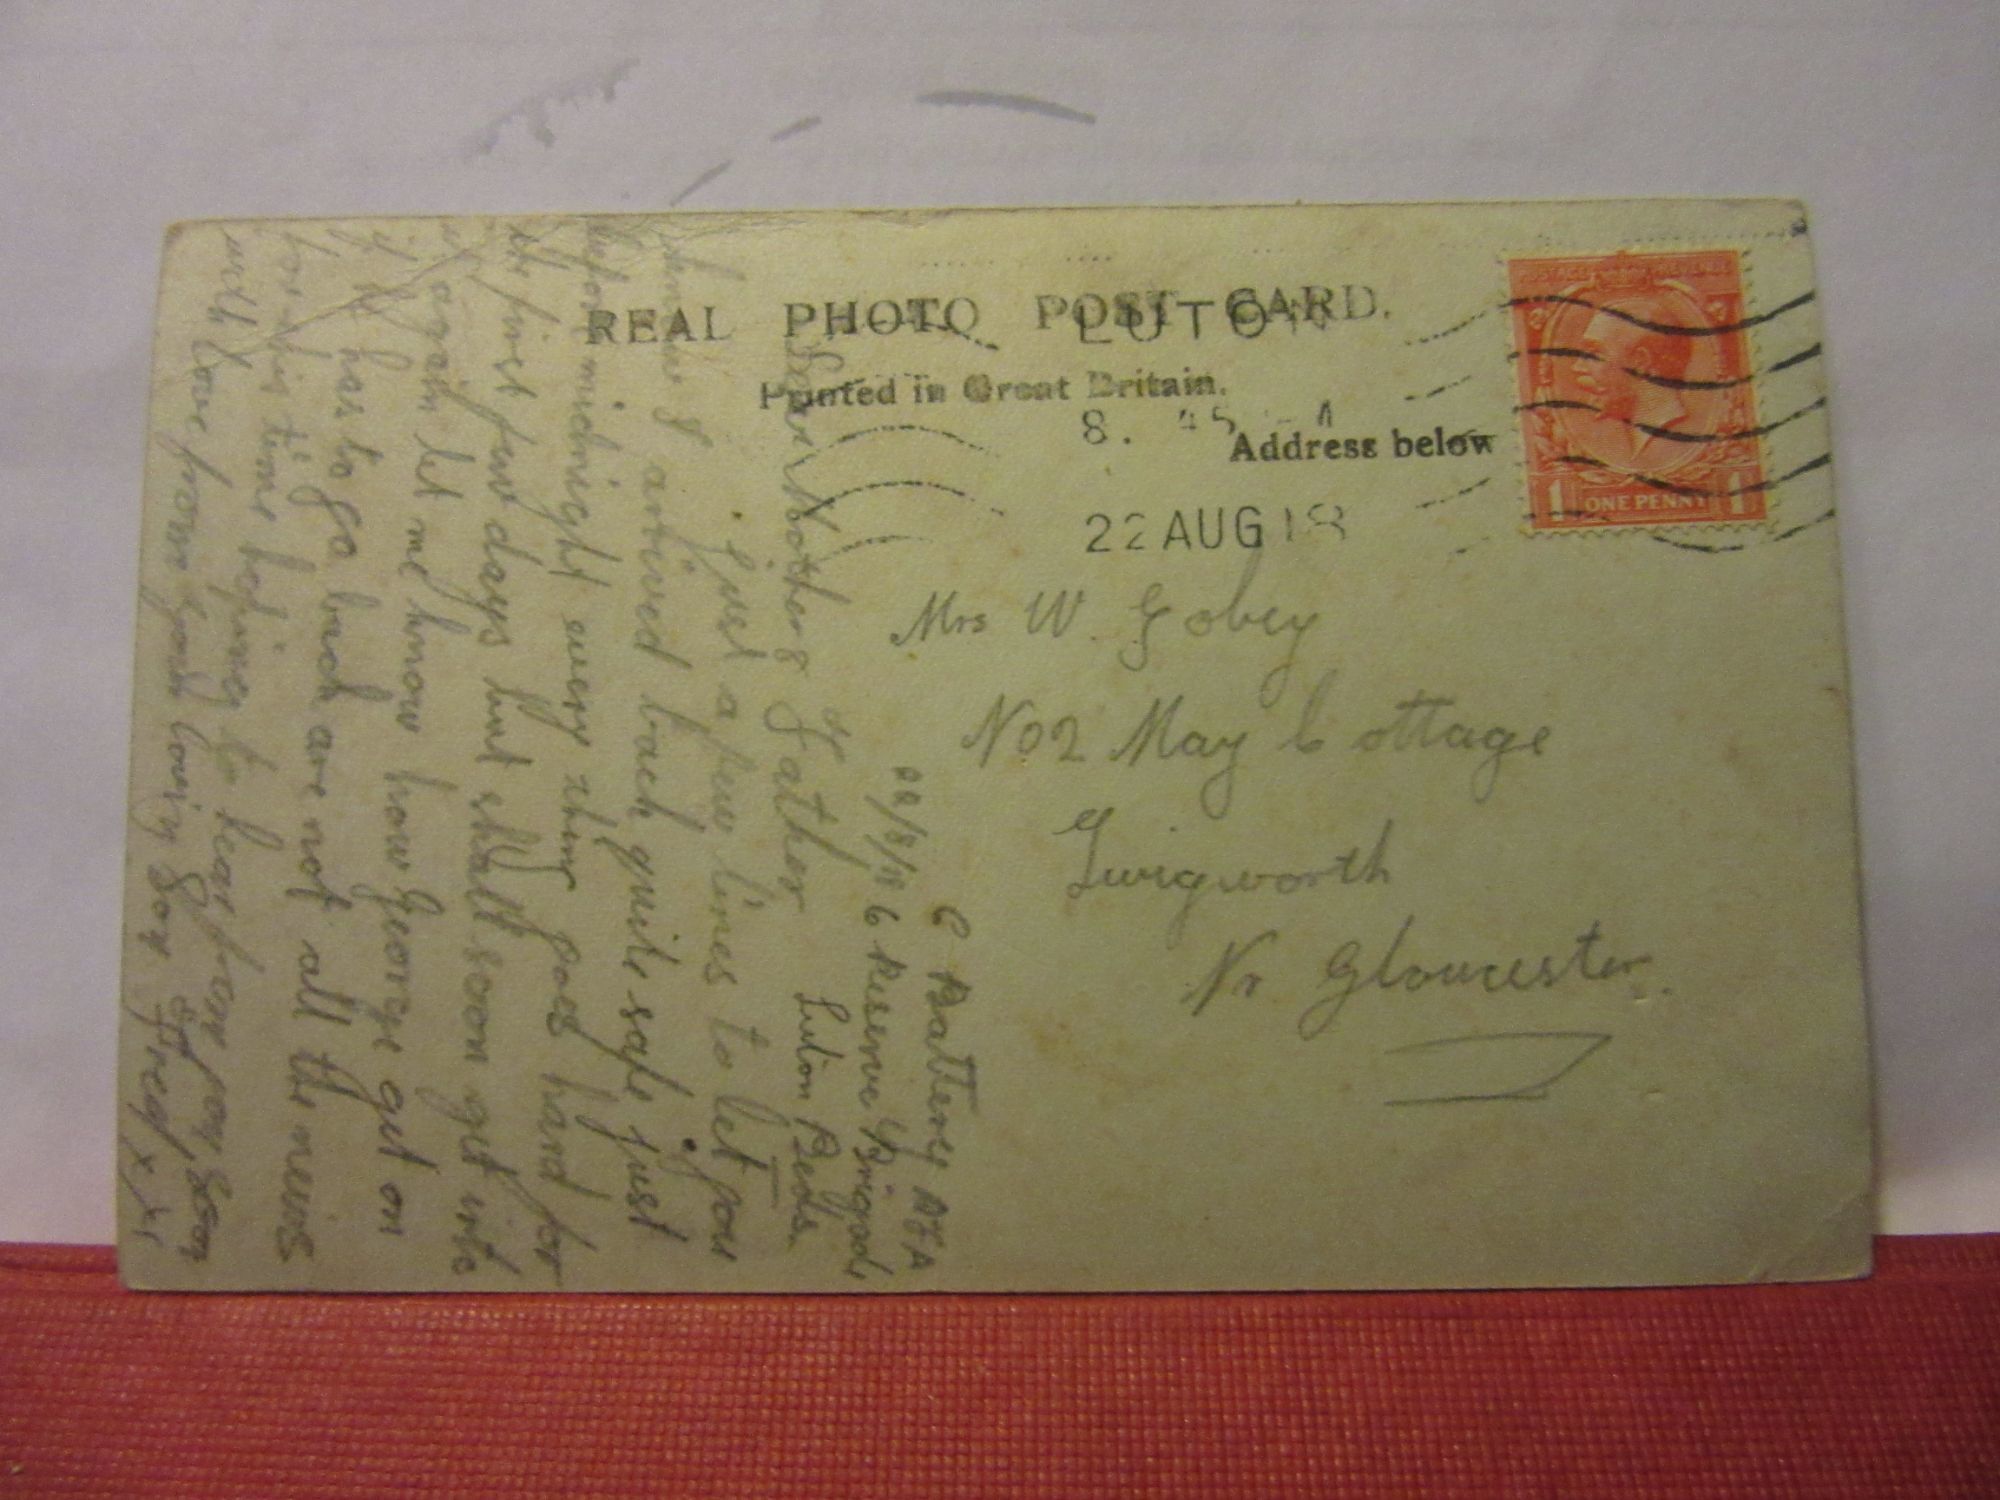 REAL PHOTO POST CARD.
Printed in Great Britain.
Address below
LUTON
8. 45 A
22 AUG 18
POSTAGE REVENUE
1 ONE PENNY 1
Mrs W. Gobey
No 2 May Cottage
Twigworth
Nr Gloucester.
C Battery RFA
22/8/18 6 Reserve Brigade
Luton Beds.
Dear Mother & Father
Just a few lines to let you
know I arrived back quite safe just
before midnight every thing goes hard for
the first few days but shall soon get into
it again let me know how George get on
if he has to go back are not all the news
for this time hoping to hear from you soon
with love from your loving Son Fred xxx